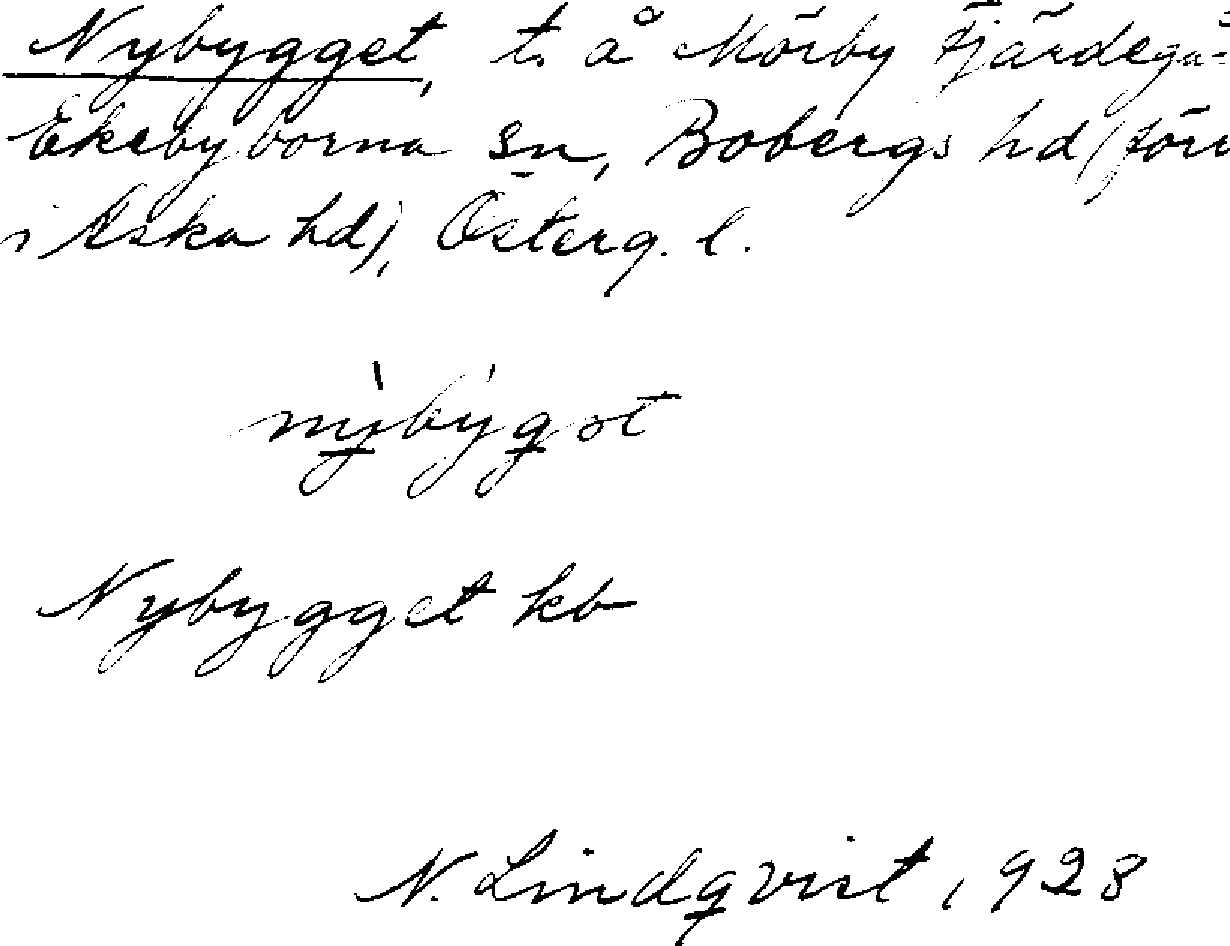 Nybygget, t. å Mörby Fjärdegå-
Ekebyborna sn, Bobergs hd (föru
i Aska hd), Österg. l.
nỳbýgət
Nybygget kb
N. Lindqvist, 1928